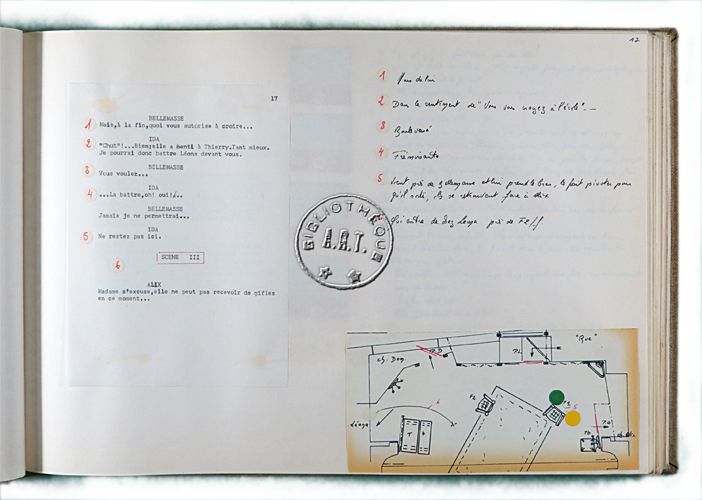 17
BELLEMASSE
1 Mais,à la fin,quoi vous autorise à croire...
IDA
2 "Chut"!...Bien;elle a menti à Thierry.Tant mieux.
Je pourrai donc battre Léone devant vous.
BELLEMASSE
3 Vous voulez...
IDA
4 ...La battre,oh! oui!/..
BELLEMASSE
Jamais je ne permettrai...
IDA
5 Ne restez pas ici.
SCENE III
6
ALEX
Madame s'excuse,elle ne peut pas recevoir de gifles
en ce moment...
12
1
2 Dans le sentiment de "Vous vous voyez à l'école" -
3 Bouleversé
4 Frémissante
5 Vient près de Bellemasse et lui prend le bras, le fait pivoter pour
qu'il sorte, ils se retrouvent face à Alex
Qui entre de
BIBLIOTHÈQUE
A.R.T.
"Rue"